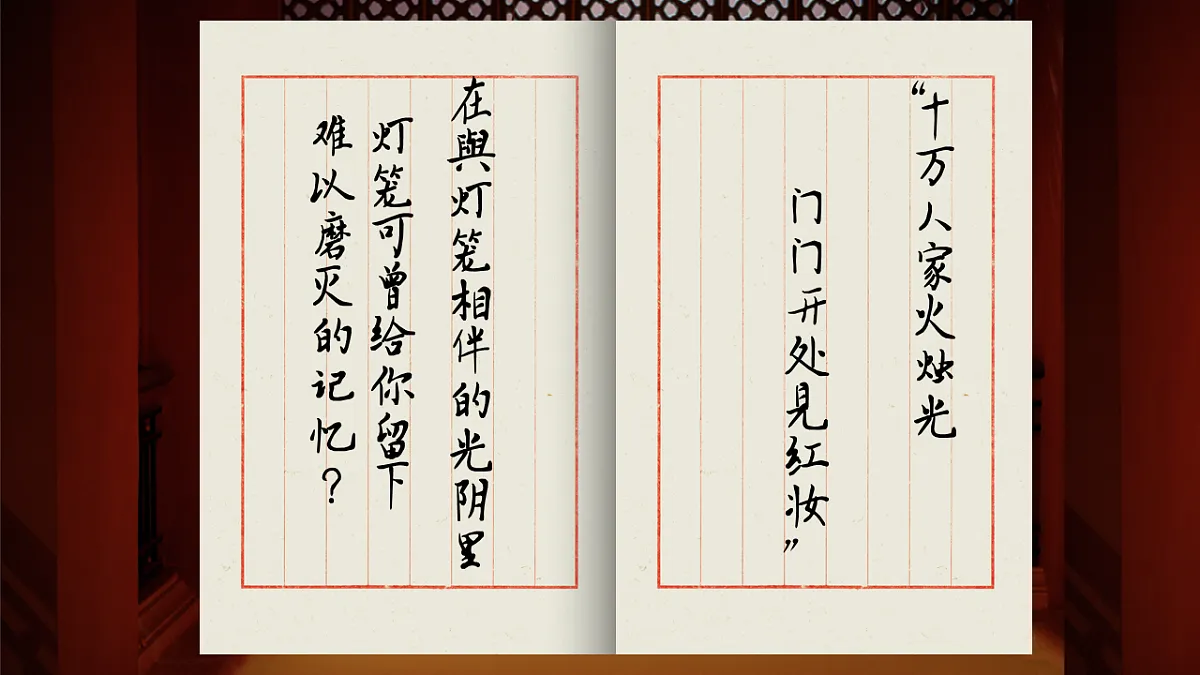 “十万人家火烛光
门门开处見红妆”
在與灯笼相伴的光阴里
灯笼可曾给你留下
难以磨灭的记忆？